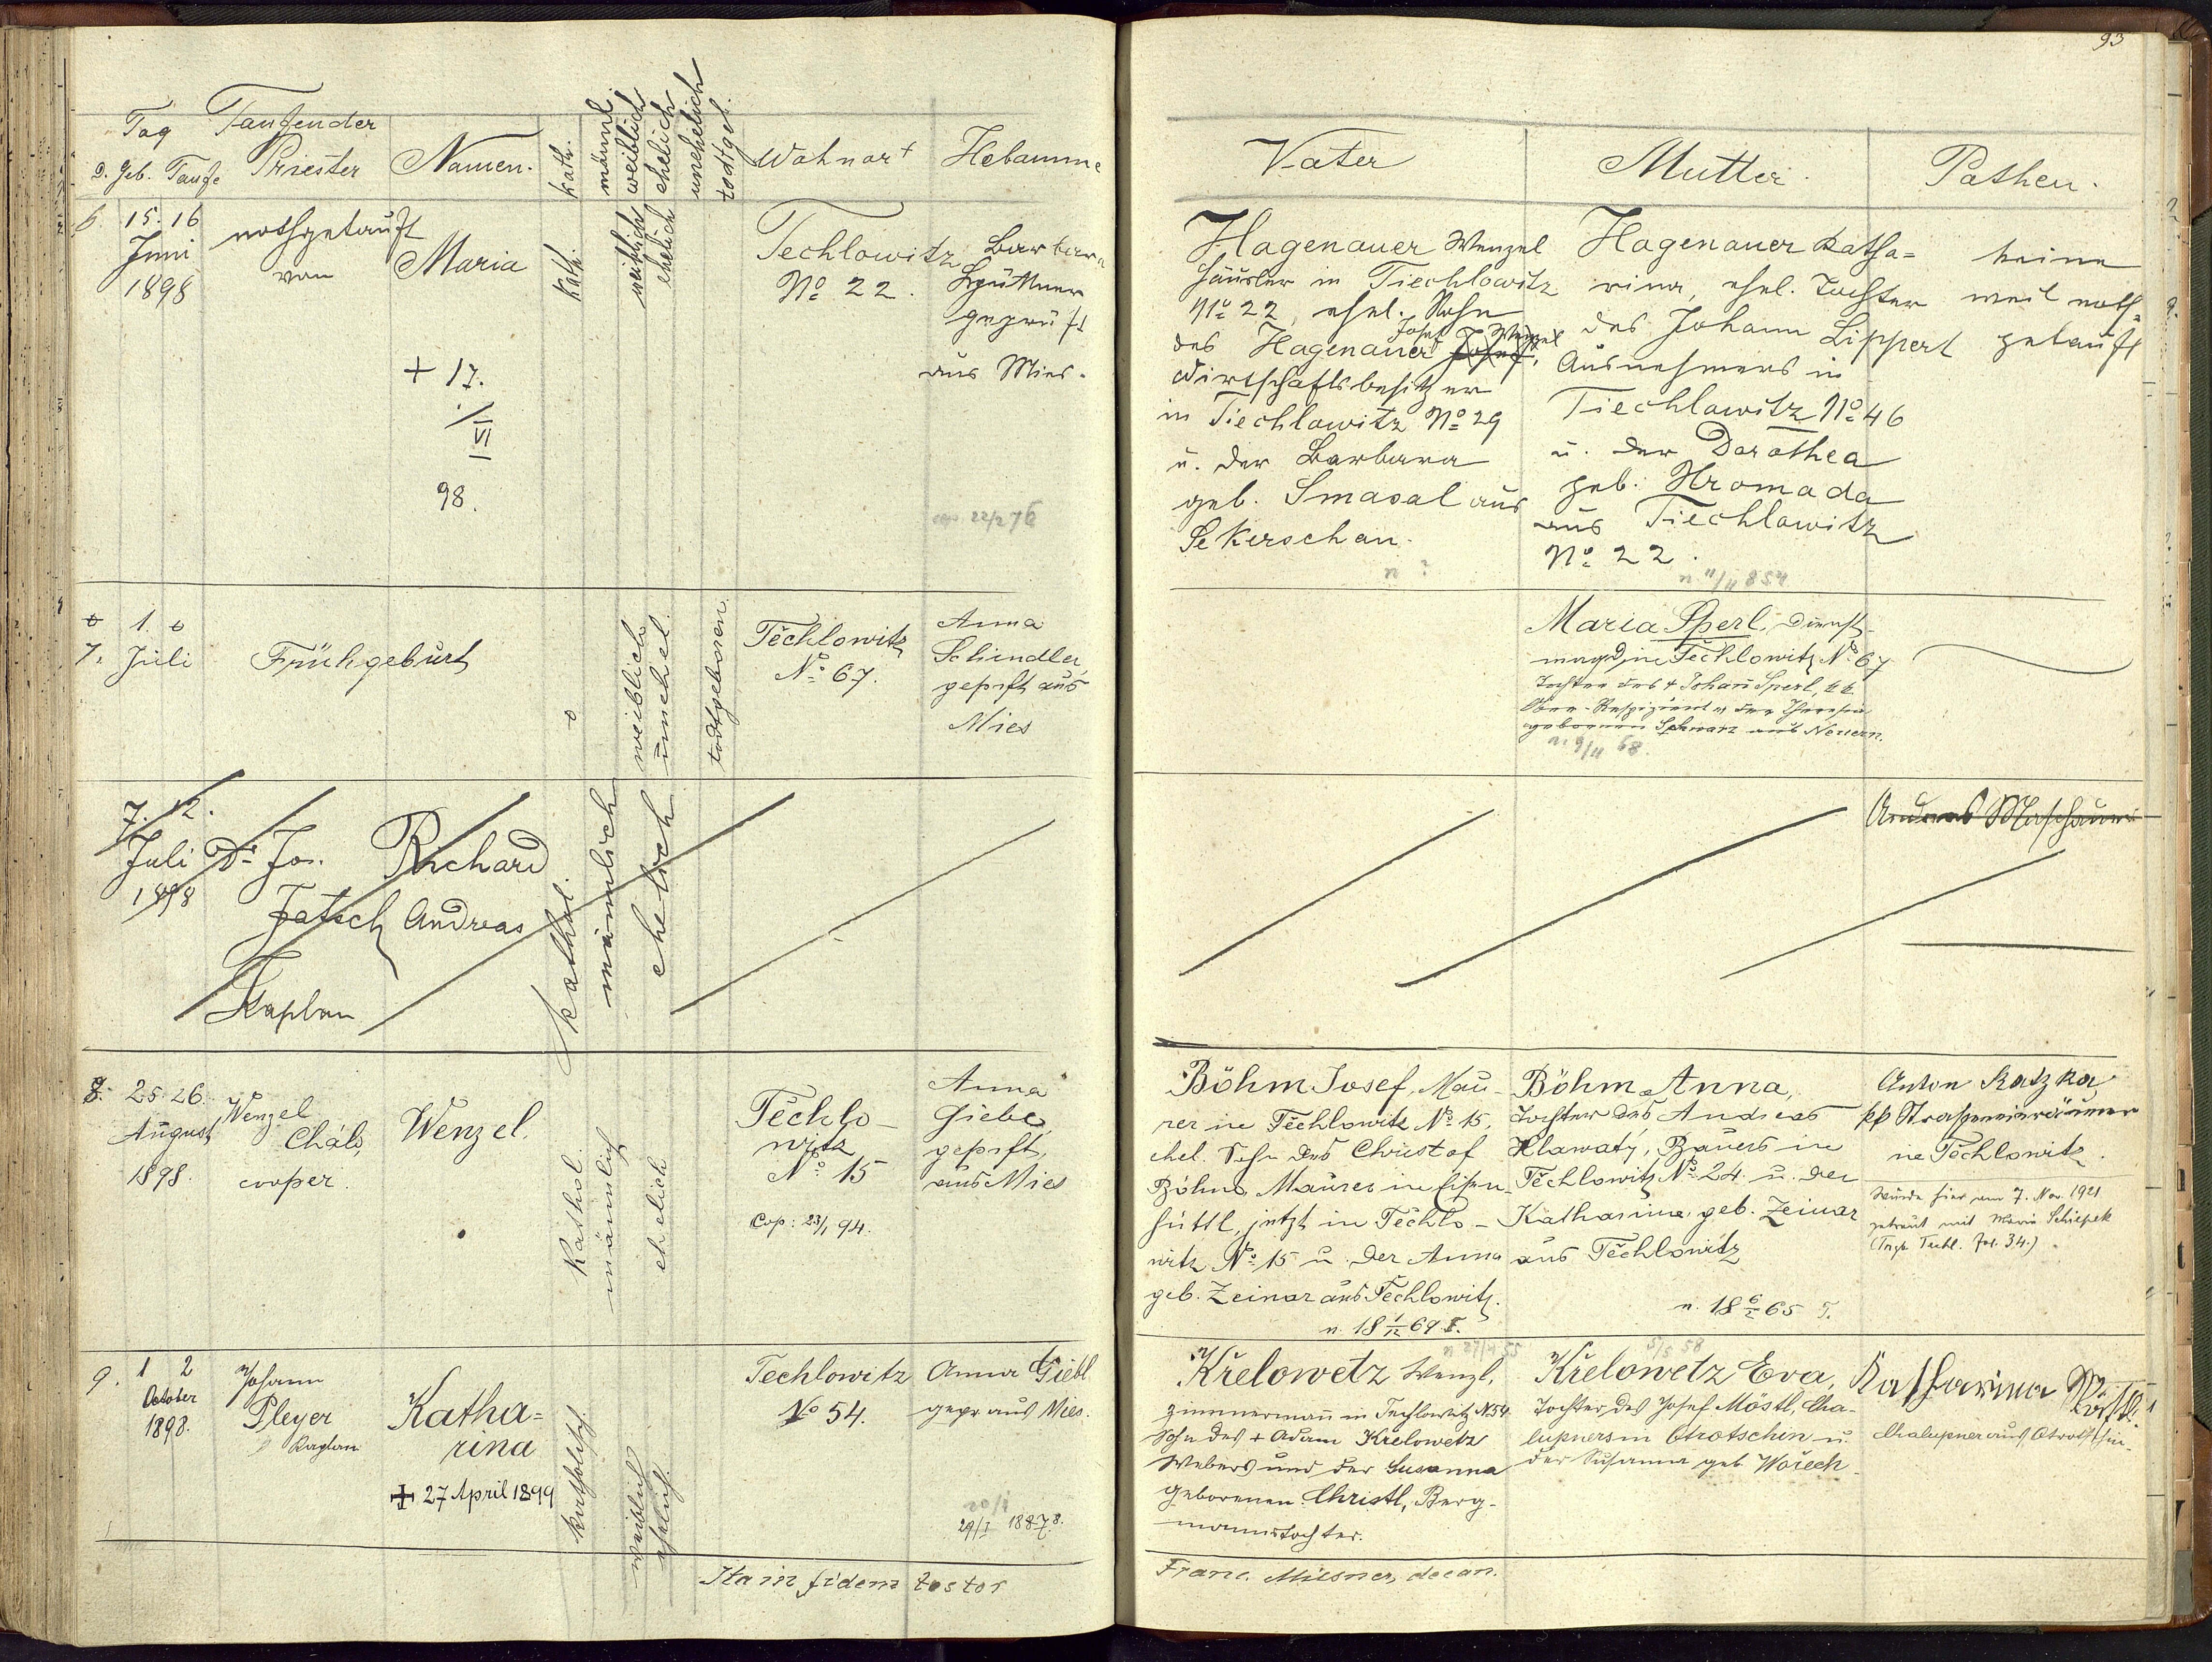 93
Tag
Taufender
D. Geb. Taufe
Priester
Namen.
kath.
männl.
weiblich
ehelich
unehelich
todtgeb.
Wohnort
Hebamme
Vater
Mutter.
Pathen.
6. 15. 16
Juni
1898
nothgetauft
von
Maria
+ 17.
/
VI
98.
kath.
weiblich
ehelich
Techlowitz
No 22.
Barbara
geprüft
aus Mies.
22/2 76
Hagenauer Wenzel
Häusler in Tiechlowitz
No 22, ehel. Sohn
des Hagenauer Josef
Wirtschaftsbesitzer
in Tiechlowitz No 29
u. der Barbara
geb. Smasal aus
Sekerschan.
n ?
Hagenauer Katha=
rina, ehel. Tochter
des Johann Lippert
Ausnehmers in
Tiechlowitz No 46
u. der Dorothea
geb. Hromada
aus Tiechlowitz
No 22.
n 11/11 854
keine
weil noth=
getauft
7. 1.
Juli
Frühgeburt
weiblich
unehel.
todtgeboren.
Těchlowitz
No 67.
Anna
Schindler,
geprft aus
Mies
Maria Sperl, Dienst-
magd in Těchlowitz No 67
Tochter des + Johan Sperl, k k
Ober-Respizient u der Theresia
geborenen Schwarz aus Neuern.
n. 9/11 68.
7. 12.
Juli
1898
Dr. Jos.
Fatsch
Kaplan
Richard
Andreas
kathol.
männlich
ehelich
Andreas
8. 25 26.
August
1898.
Wenzel
Cháb,
cooper.
Wenzel.
Kathol.
männlich
ehelich
Těchlo-
witz
No 15
Cop: 23/1 94.
Anna
Giebl,
geprft,
aus Mies
Böhm Josef, Mau-
rer in Těchlowitz No 15,
ehel. Sohn des Christof
Böhm, Maurer in Eisen-
hüttl, jetzt in Těchlo-
witz No 15 u. der Anna
geb. Zeinar aus Těchlowitz.
n. 18 1/12 69 T.
Böhm Anna,
Tochter des Andreas
Hlawatý, Bauers in
Těchlowitz No 24 u. der
Katharina geb. Zeinar
aus Těchlowitz
n. 18 6/2 65 T.
Anton Katzka
kk Strasseneinräumer
in Těchlowitz.
Wurde hier am 7. Nov. 1921
getraut mit Maria Schiepek
(Trgb. Techl. fol. 34.)
9. 1 2
October
1898.
Johann
Pleyer
Kaplan
Katha=
rina
+ 27 April 1899
katholisch.
weiblich
ehelich.
Techlowitz
No 54.
Anna Giebl
gepr. aus Mies.
29/I 1887 8.
n 27/4 55
Křelowetz Wenzl,
Zimmermann in Techlowitz N 54
Sohn des + Adam Křelowetz
Webers und der Susanna
geborenen Christl, Berg-
mannstochter.
5/5 58
Křelowetz Eva,
Tochter des Josef Möstl, Cha-
lupners in Otrotschin u.
der Susanna geb. Wořech.
Katharina Möstl.
Chalupner aus Otrotschin.
Ita in fidem testor
Franc. Milsner, decan.